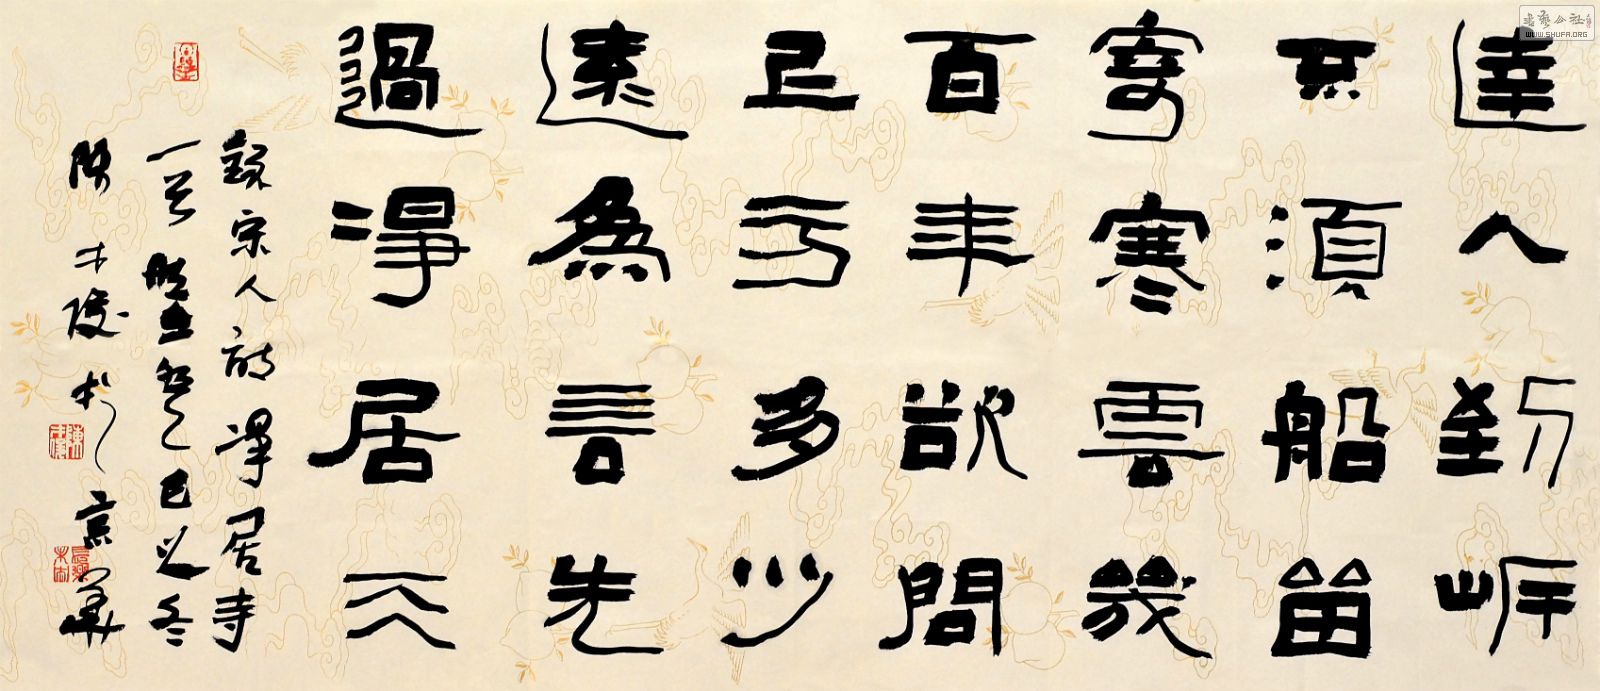 達人到岸
不須船留
寄寒雲幾
百年欲問
上方多少
遠為言先
過淨居天
錄宋人詩淨居寺
一首 之冬
陳才俊於京華
書藝公社
WWW.SHUFA.ORG